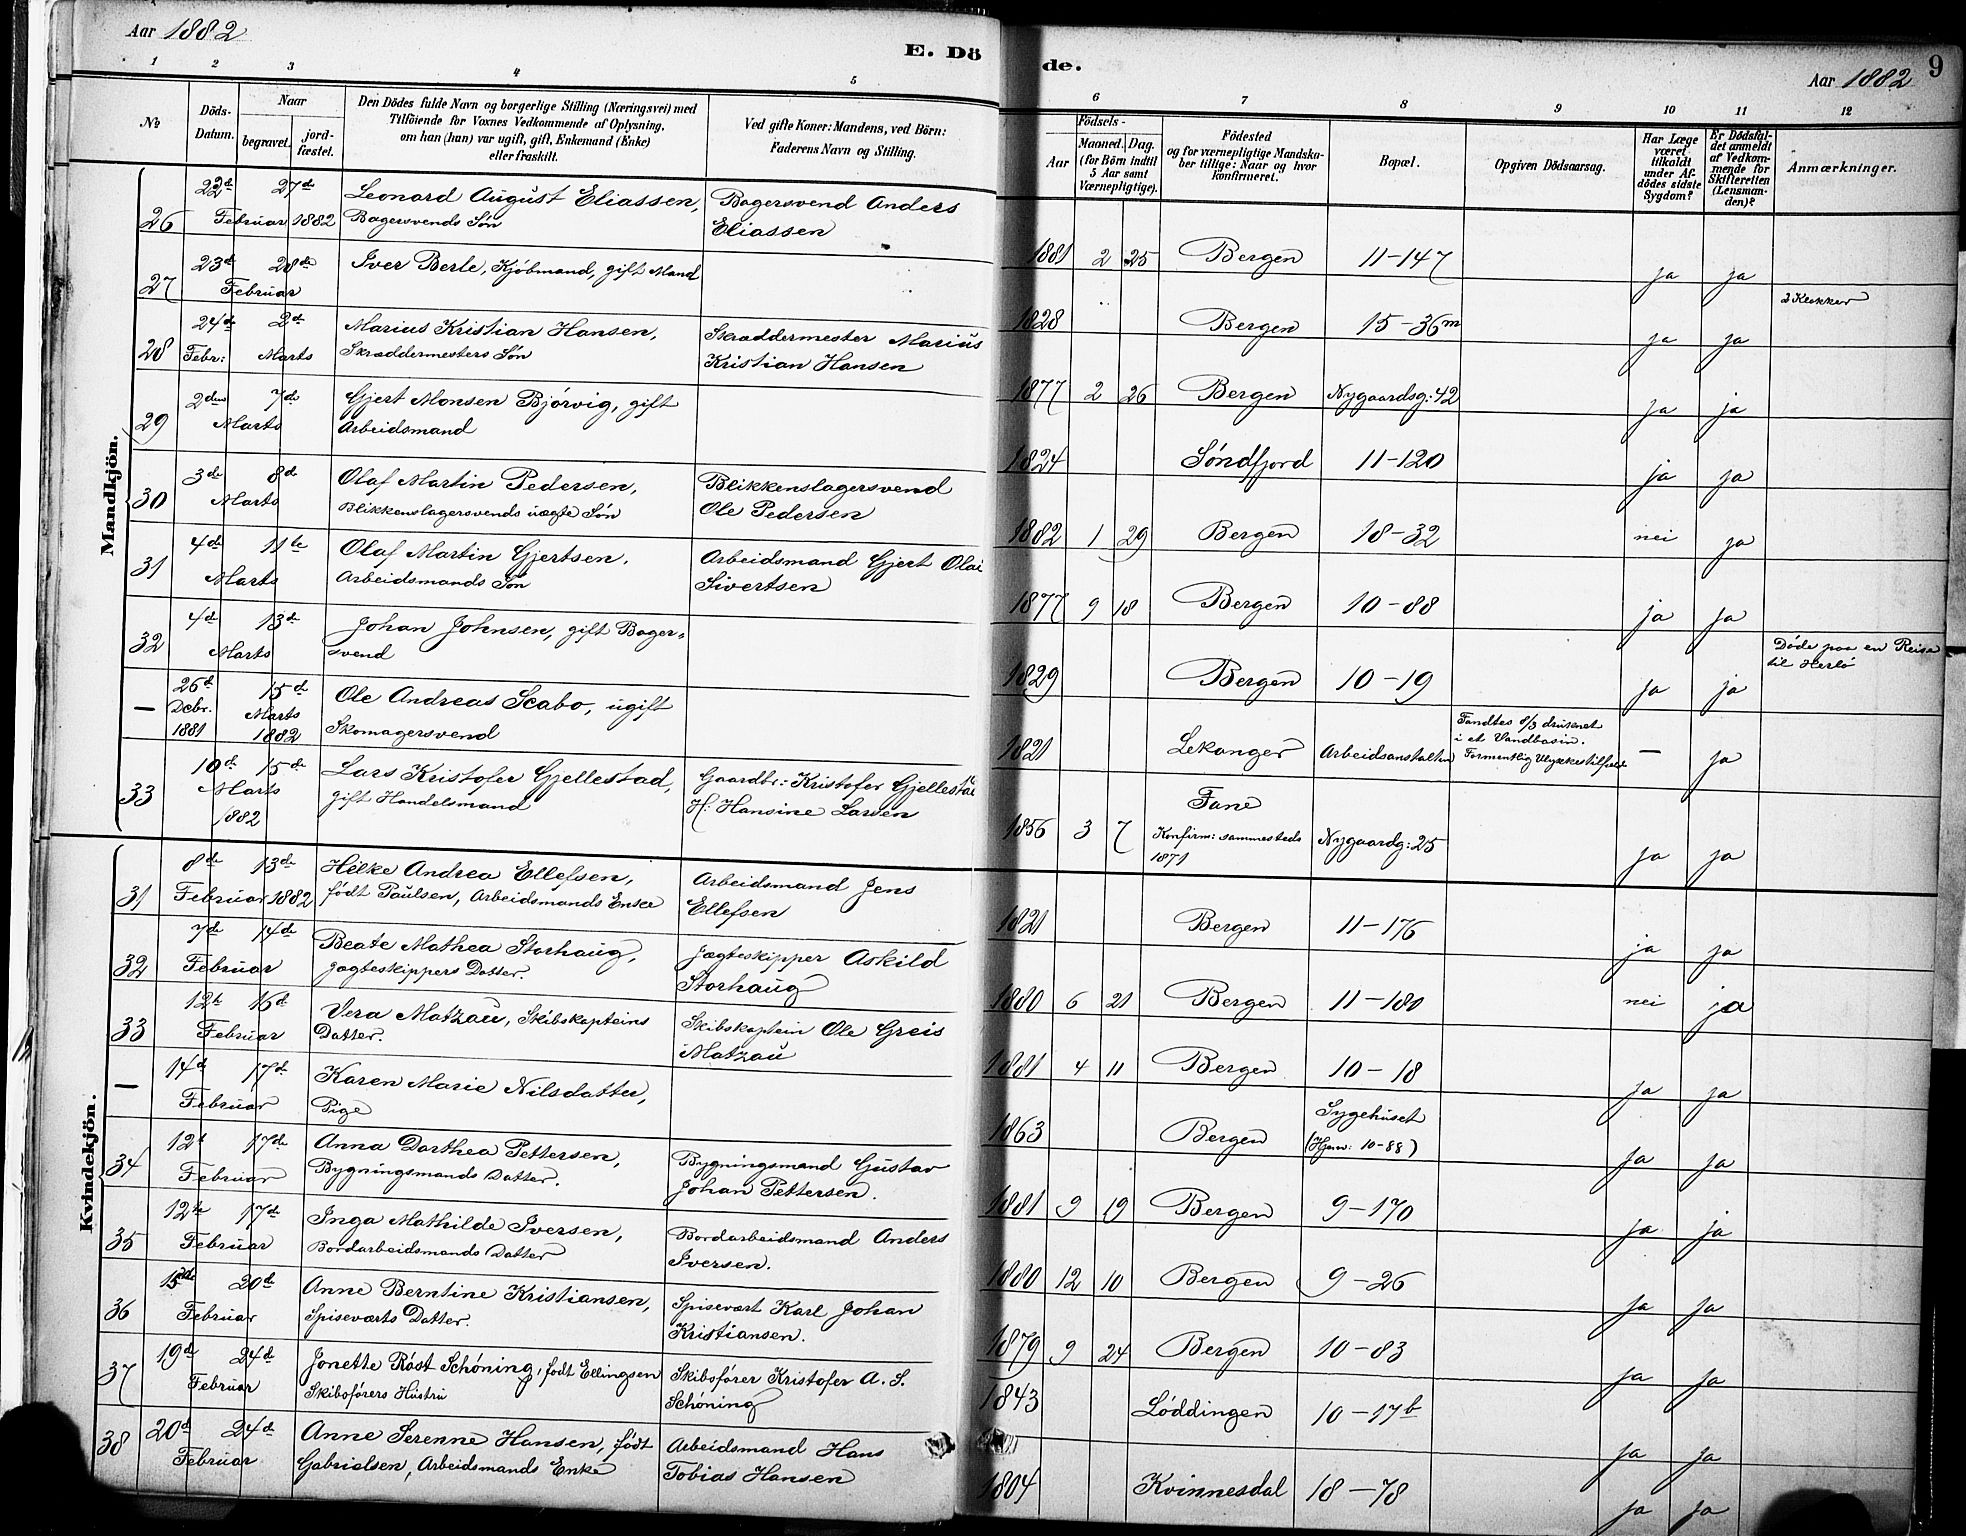 Aar 1882
E. Dö
de.
Aar 1882
9
1 2 3 4 5 6 7 8 9 10 11 12
No
Döds-
Datum.
Naar
begravet.
jord-
fæstet.
Den Dödes fulde Navn og borgerlige Stilling (Næringsvei) med
Tilföiende for Voxnes Vedkommende af Oplysning,
om han (hun) var ugift, gift, Enkemand (Enke)
eller fraskilt.
Ved gifte Koner: Mandens, ved Börn:
Faderens Navn og Stilling.
Födsels-
Aar
Maaned. Dag.
(for Börn indtil
5 Aar samt
Værnepligtige).
Födested
og for værnepligtige Mandska-
ber tillige: Naar og hvor
konfirmeret.
Bopæl.
Opgiven Dödsaarsag.
Har Læge
været
tilkaldt
under Af-
dödes sidste
Sygdom?
Er Dödsfal-
det anmeldt
af Vedkom-
mende for
Skifteretten
(Lensman-
den)?
Anmærkninger.
Mandkjön.
26 22d 27d Leonard August Eliassen, Bagersvend Anders
Februar 1882 Bagersvends Søn Eliassen
1881 2 25 Bergen 11-147 ja ja
27 23d 28de Iver Berle, Kjøbmand, gift Mand
Februar
1828 Bergen 15-36m ja ja
2 Klokker
28 24de 2d Marius Kristian Hansen, Skræddermester Marius
Febr: Marts Skræddermesters Søn Kristian Hansen
1877 2 26 Bergen Nygaardsg: 42 ja ja
29 2den 7de Gjert Monsen Bjørvig, gift
Marts Arbeidsmand
1824 Søndfjord 11-120 ja ja
30 3de 8d Olaf Martin Pedersen, Blikkenslagersvend
Marts Blikkenslagersvends uægte Søn Ole Pedersen
1882 1 29 Bergen 18-32 nei ja
31 4de 11te Olaf Martin Gjertsen, Arbeidsmand Gjert Olai
Marts Arbeidsmands Søn Sivertsen
1877 9 18 Bergen 10-88 ja ja
32 4d 13de Johan Johnsen, gift Bager-
Marts svend
1829 Bergen 10-19 ja ja
Døde paa en Reise
til Herlø
— 26d 15d Ole Andreas Scabo, ugift
Debr. Marts Skomagersvend
1881 1882
1821 Lekanger Arbeidsanstalten
Fandtes 8/3 druknet
i et Vandbasin.
Formentlig Ulykkestilfælde — ja
33 10d 15de Lars Kristofer Gjellestad, Gaardbr: Kristofer Gjellestad
Marts gift Handelsmand H: Hansine Larsen
1882
1856 3 7 Fane Nygaardg: 25 ja ja
Konfirm: sammesteds
1871
Kvindekjön.
31 8de 13de Hilke Andrea Ellefsen, Arbeidsmand Jens
Februar 1882 født Paulsen, Arbeidsmands Enke Ellefsen
1821 Bergen 11-176 ja ja
32 7de 14de Beate Mathea Storhaug, Jægteskipper Askild
Februar Jægteskippers Datter. Storhaug
1880 6 21 Bergen 11-180 nei ja
33 12t 16d Vera Matzau, Skibskapteins Skibskaptein Ole Greis
Februar Datter. Matzau
1881 4 11 Bergen 10-18 ja ja
— 14d 17de Karen Marie Nilsdatter,
Februar Pige
1863 Bergen Sygehuset ja ja
(Hjem: 10-88)
34 12t 17de Anna Dorthea Pettersen, Bygningsmand Gustav
Februar Bygningsmands Datter. Johan Pettersen.
1881 9 19 Bergen 9-170 ja ja
35 12te 17d Inga Mathilde Iversen, Bordarbeidsmand Anders
Februar Bordarbeidsmands Datter Iversen.
1880 12 10 Bergen 9-26 ja ja
36 15de 20d Anne Berntine Kristiansen, Spisevært Karl Johan
Februar Spiseværts Datter. Kristiansen.
1879 9 24 Bergen 10-83 ja ja
37 19d 24d Jonette Røst Schöning, født Ellingsen Skibsfører Kristofer A. S.
Februar Skibsførers Hustru Schöning
1843 Løddingen 10-17b ja ja
38 20d 24d Anne Serenne Hansen, født Arbeidsmand Hans
Februar Gabrielsen, Arbeidsmands Enke Tobias Hansen
1804 Kvinnesdal 18-78 ja ja